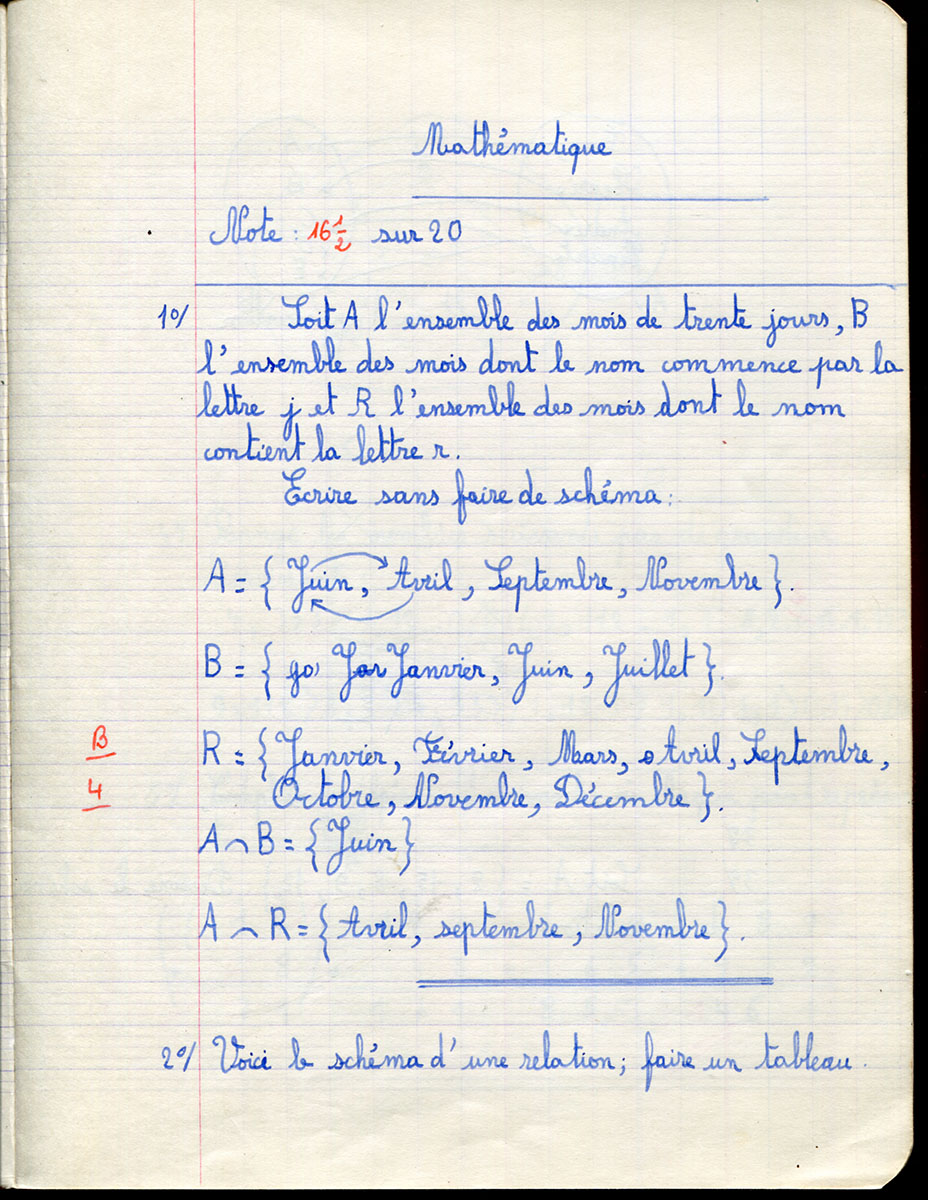 Mathématique
Note : 16 1/2 sur 20
1°/ Soit A l'ensemble des mois de trente jours, B
l'ensemble des mois dont le nom commence par la
lettre j et R l'ensemble des mois dont le nom
contient la lettre r.
Ecrire sans faire de schéma :
A = { Juin, Avril, Septembre, Novembre }.
B = { Janvier, Juin, Juillet }.
B
R = { Janvier, Février, Mars, Avril, Septembre,
4
Octobre, Novembre, Décembre }.
A ∩ B = { Juin }
A ∩ R = { Avril, septembre, Novembre }.
2°/ Voici le schéma d'une relation ; faire un tableau.